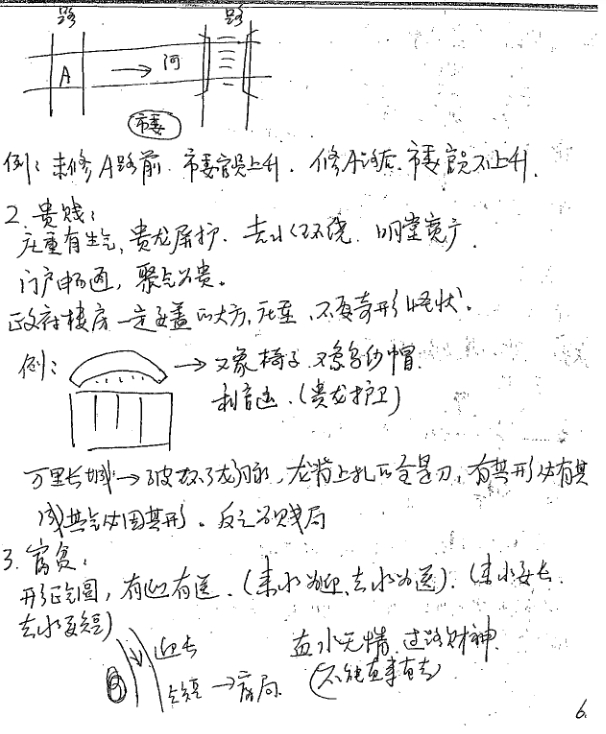 路 路
A → 河
市委
例: 未修A路前. 市委官员上升. 修A路后. 市委官员不上升.
2. 贵贱:
庄重有生气, 贵龙屏护. 去水环绕. 明堂宽广.
门户畅通, 聚气为贵。
政府楼房一定要盖的大方, 庄重, 不要奇形怪状.
例: → 又象椅子. 又象乌纱帽.
利官运. (贵龙护卫)
万里长城→破坏了龙脉, 龙背上扎的全是刀, 有其形必有其
其气必因其形. 反之为贱局
3. 富贫:
形正气圆, 有迎有送. (来水为迎、去水为送). (来水要长.
去水要短)
迎长 直水无情. 过路财神.
去短→富局. (不能直来直去)
6.